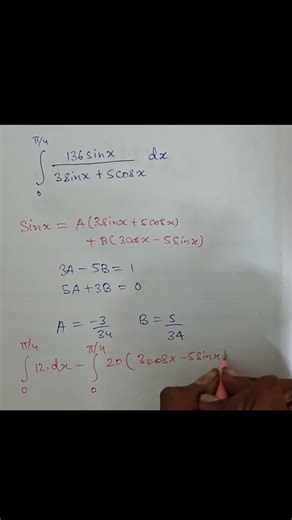 ∫₀^π/4 136sinx / 3sinx + 5cosx dx
Sinx = A(3sinx + 5cosx)
+ B(3cosx - 5sinx)
3A - 5B = 1
5A + 3B = 0
A = -3/34 B = 5/34
∫₀^π/4 12.dx - ∫₀^π/4 20(3cosx - 5sinx)